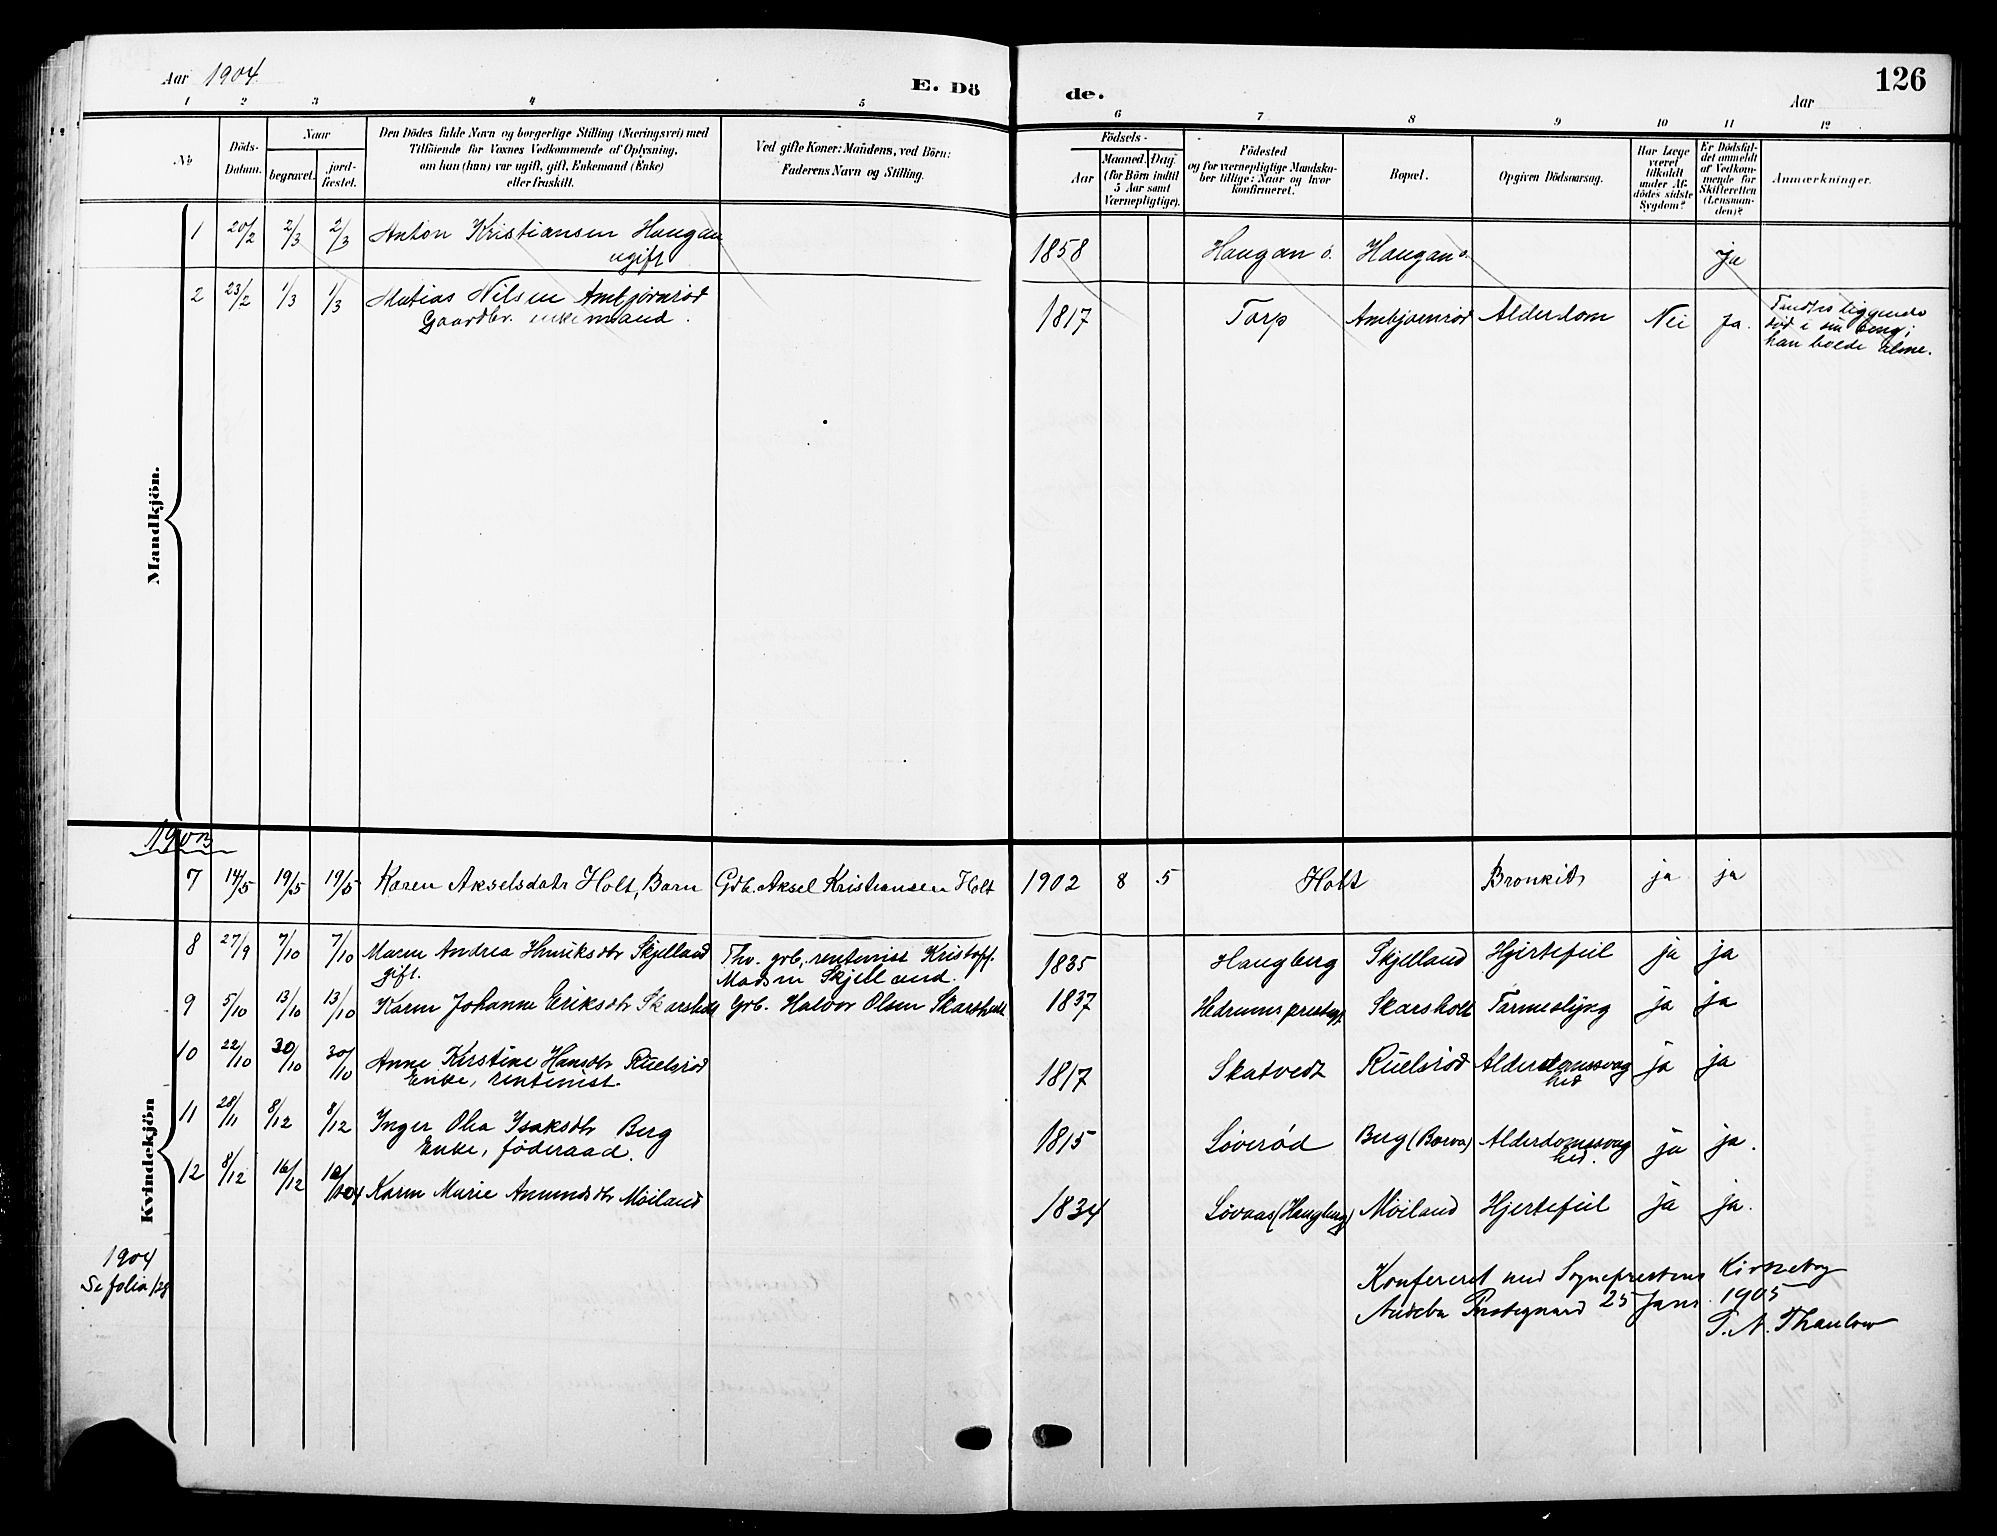 Aar 1904
E. Dö
de.
126
Aar
1 2 3 4 5 6 7 8 9 10 11 12
No
Döds-
Datum.
Naar
begravet.
jord-
fæstet.
Den Dödes fulde Navn og borgerlige Stilling (Næringsvei) med
Tilföiende for Voxnes Vedkommende af Oplysning,
om han (hun) var ugift, gift, Enkemand (Enke)
eller fraskilt.
Ved gifte Koner: Mandens, ved Börn:
Faderens Navn og Stilling.
Födsels-
Aar
Maaned. Dag.
(for Börn indtil
5 Aar samt
Værnepligtige).
Födested
og for værnepligtige Mandska-
ber tillige: Naar og hvor
konfirmeret.
Bopæl.
Opgiven Dödsaarsag.
Har Læge
været
tilkaldt
under Af-
dödes sidste
Sygdom?
Er Dödsfal-
det anmeldt
af Vedkom-
mende for
Skifteretten
(Lensman-
den)?
Anmærkninger.
Mandkjön.
1 20/2 2/3 2/3 Anton Kristiansen Haugan 1858 Haugan ö. Haugan ö. Ja
ugift
2 23/2 1/3 1/3 Matias Nilsen Ambjörnröd 1817 Torp Ambjoernröd Alderdom Nei Ja.
Gaardbr. enkemand.
Fandtes liggende
död i sin seng;
han boede alene.
1903
7 14/5 19/5 19/5 Karen Akselsdatr Holt, Barn Gdb. Aksel Kristiansen Holt 1902 8 5 Holt Bronkit ja ja
8 27/9 7/10 7/10 Maren Andrea Henriksdtr Skjelland Fhv. grb., rentenist Kristoff. 1835 Haugberg Skjelland Hjertefeil ja ja
gift. Madsen Skjelland.
9 5/10 13/10 13/10 Karen Johanne Eriksdtr Skarsholt Grb. Halvor Olsen Skarsholt 1837 Hedrums prestegj. Skarsholt Tarmeslyng ja ja
10 22/10 30/10 30/10 Anne Kirstine Hansdtr Ruelsröd 1817 Skatvedt Ruelsröd Alderdomssvag ja ja
Enke, rentenist. hed
11 28/11 8/12 8/12 Inger Olea Isaksdtr Berg 1815 Löveröd Berg (Borva) Alderdomssvag ja ja.
Enke, föderaad. hed.
12 8/12 16/12 Karen Marie Amundsdtr Möiland 1834 Lövaas (Haugberg) Möiland Hjertefeil ja ja.
Kvindekjön
1904
Se folia 128
Konfereret med Sogneprestens Kirkebog
Andebu Prestegaard 25 Janr. 1905
T. A. Thaulow